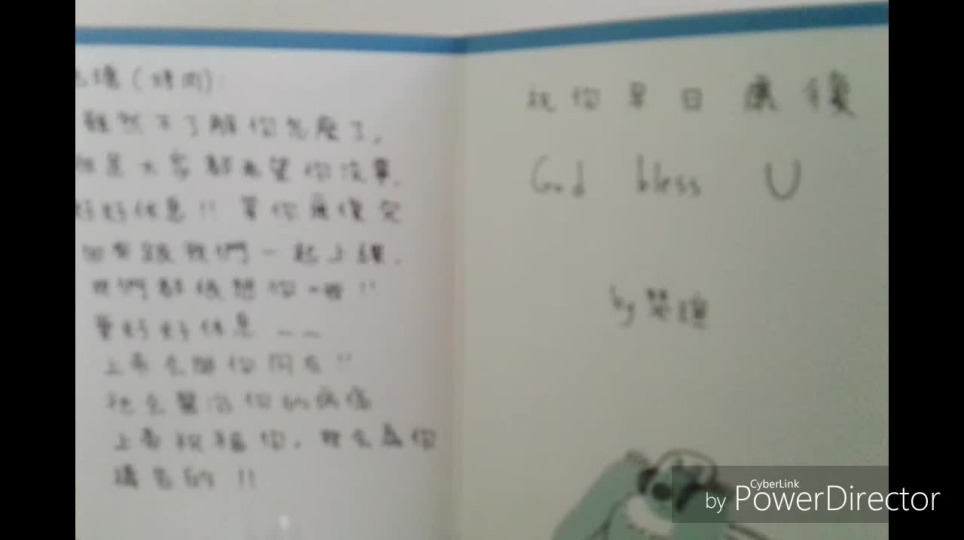 (烤肉):
雖然不了解你怎麼了,
但是大家都希望你沒事,
好好休息!! 等你康復交
回來跟我們一起上課.
我們都很想你喔!!
要好好休息 ~~
上帝會與你同在!!
祂會醫治你的病痛
上帝祝福你, 我會為你
禱告的!!
祝你早日康復
God bless U
by
by CyberLink PowerDirector